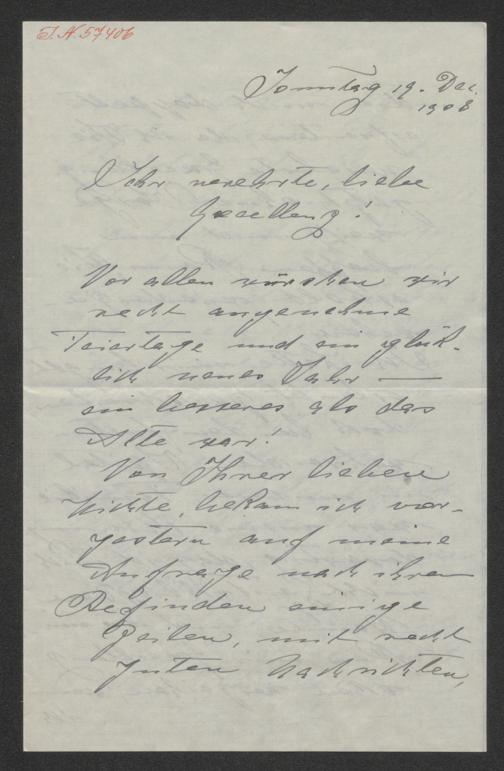 I.N. 57406
Sonntag 19. Dec.
1908
Sehr verehrte, liebe
Excellenz!
Vor allen wünschen wir
recht angenehme
Feiertage und ein glük-
lich neues Jahr —
ein besseres als das
Alte war!
Von Ihrer lieben
Nichte, bekam ich vor-
gestern auf meine
Anfrage nach ihrem
Befinden einige
Zeilen, mit recht
guten Nachrichten,